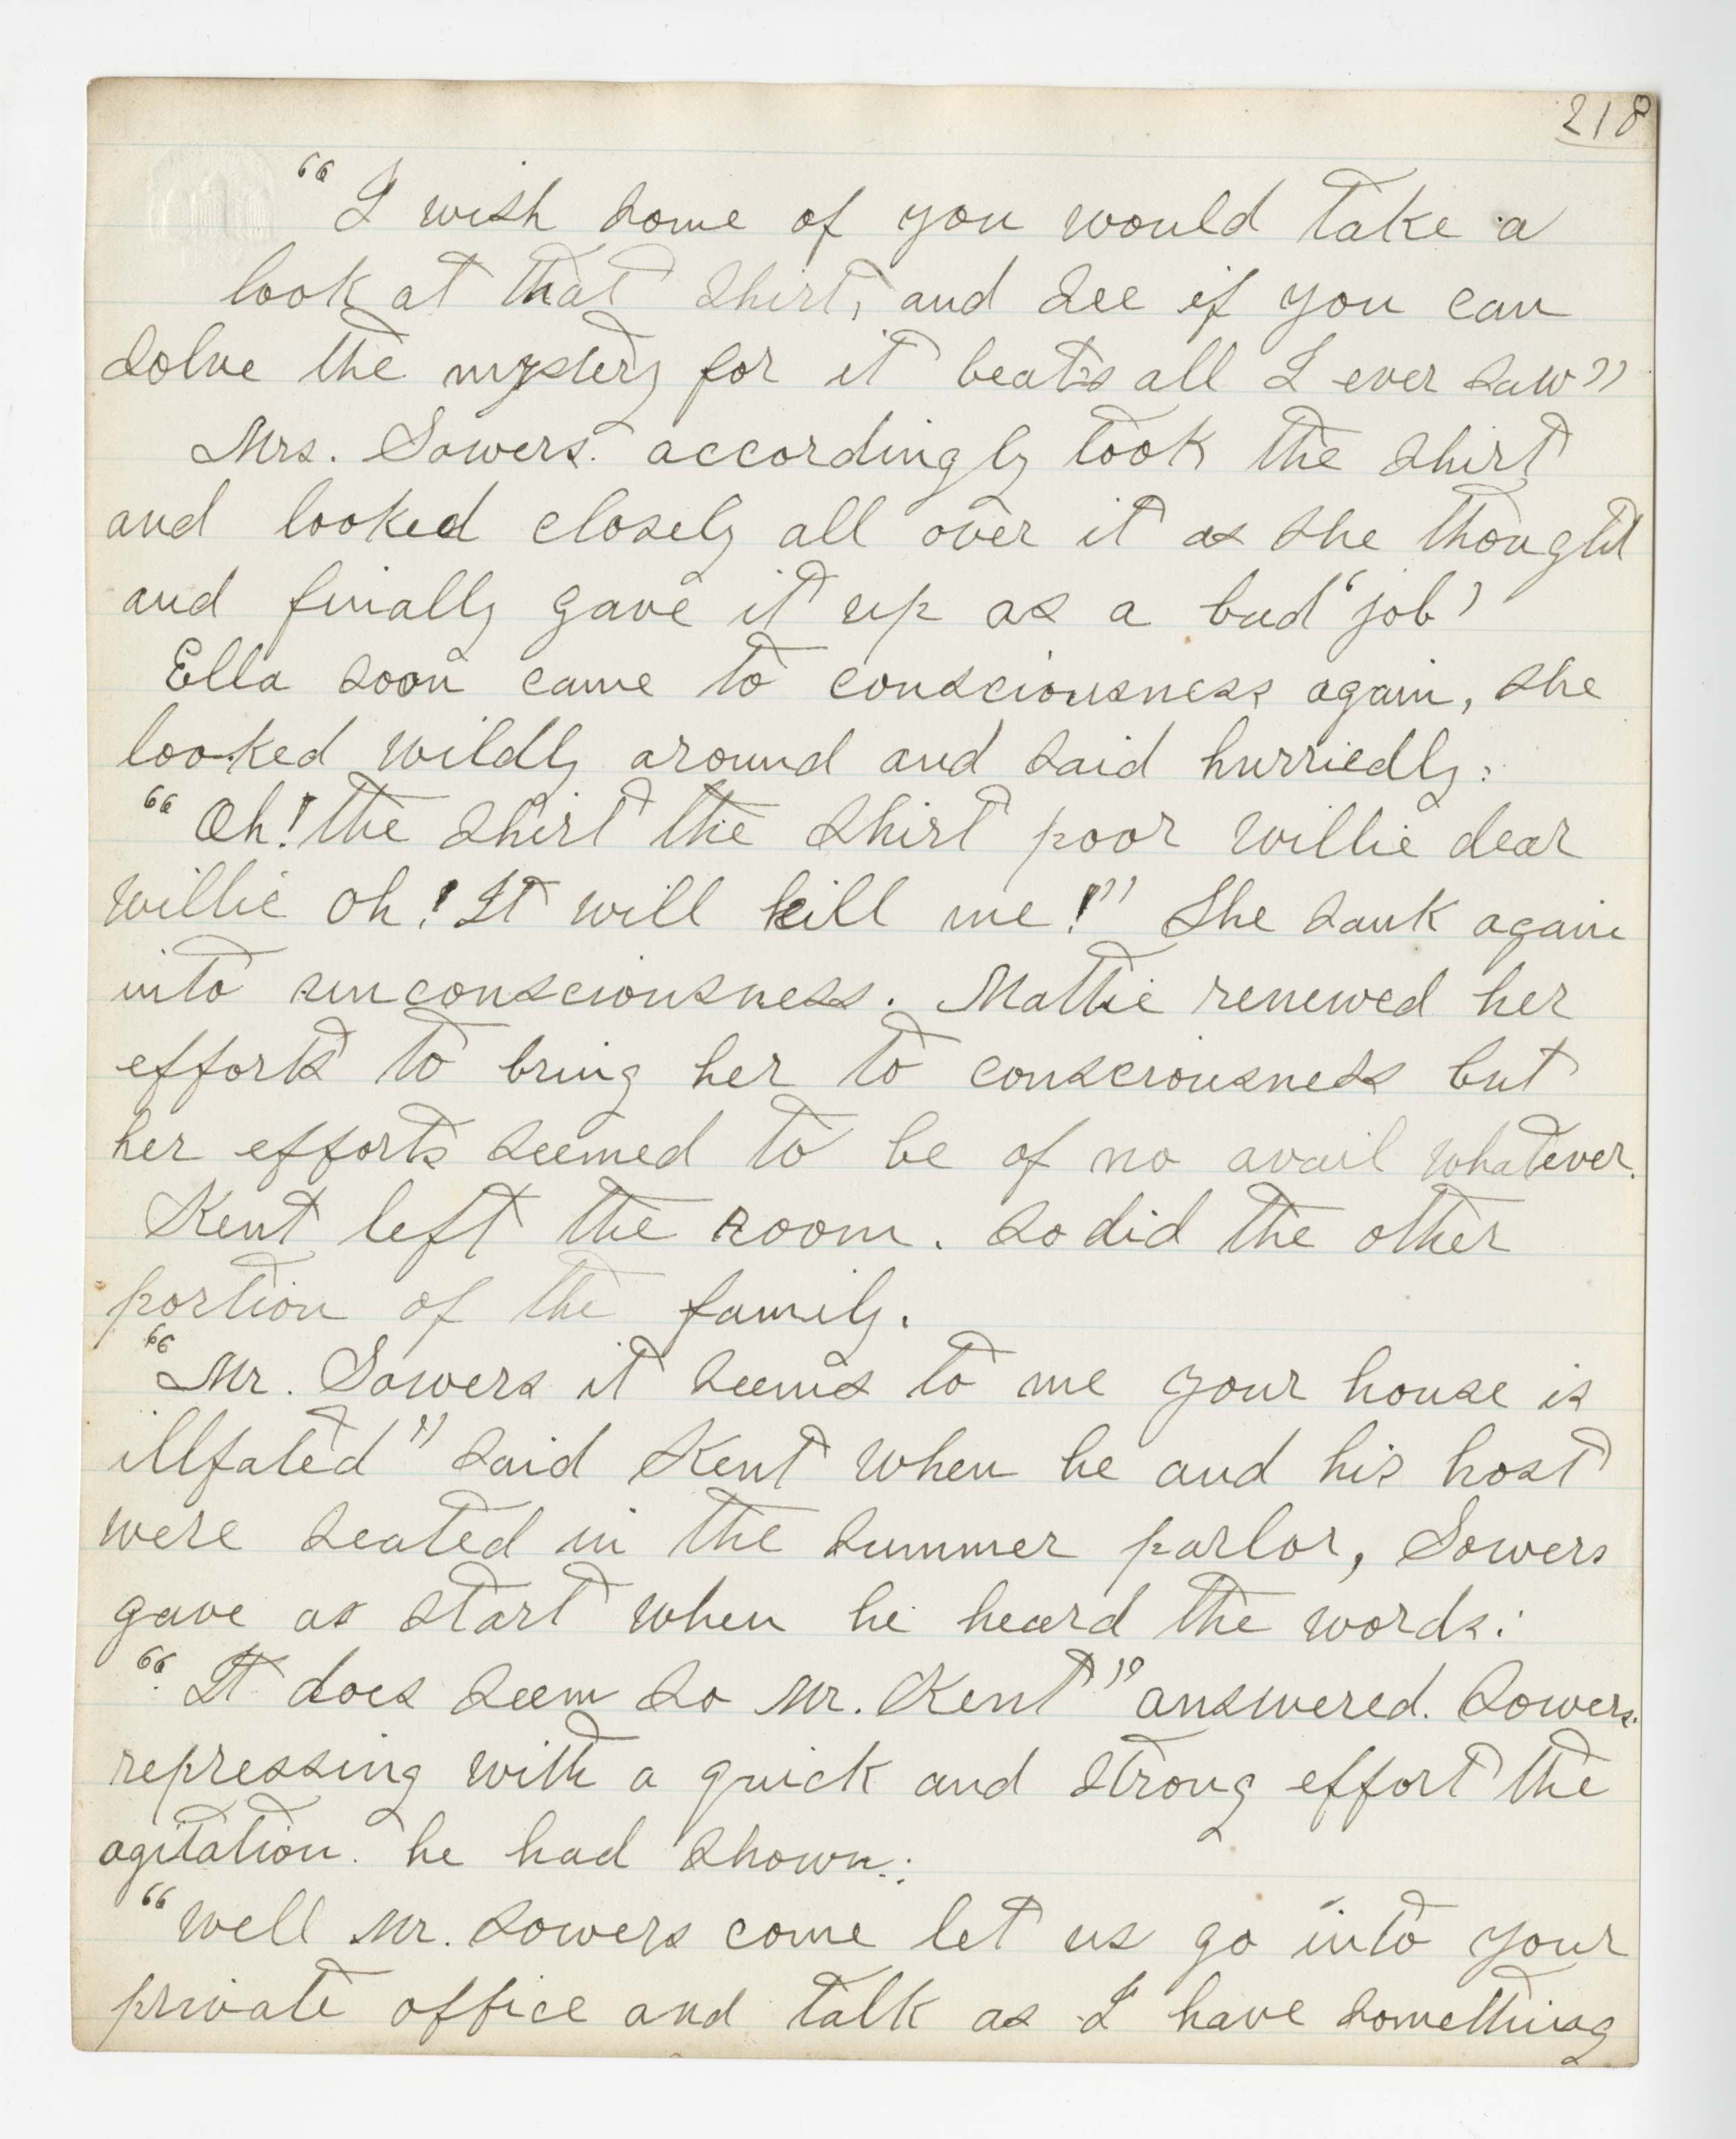 218
"I wish some of you would take a
look at that shirt, and see if you can
solve the mystery for it beats all I ever saw"
Mrs. Sowers. accordingly took the shirt
and looked closely all over it as she thought
and finally gave it up as a bad 'job'
Ella soon came to consciousness again, she
looked wildly around and said hurriedly:
"Oh! the shirt the shirt poor Willie dear
Willie oh! It will kill me!" She sank again
into unconsciousness. Mattie renewed her
efforts to bring her to consciousness but
her efforts seemed to be of no avail whatever.
Kent left the room. So did the other
portion of the family.
"Mr. Sowers it seems to me your house is
illfated" said Kent when he and his host
were seated in the summer parlor, Sowers
gave as start when he heard the words:
"It does seem so Mr. Kent" answered. Sowers.
repressing with a quick and strong effort the
agitation. he had shown:
"Well Mr. Sowers come let us go into your
private office and talk as I have something